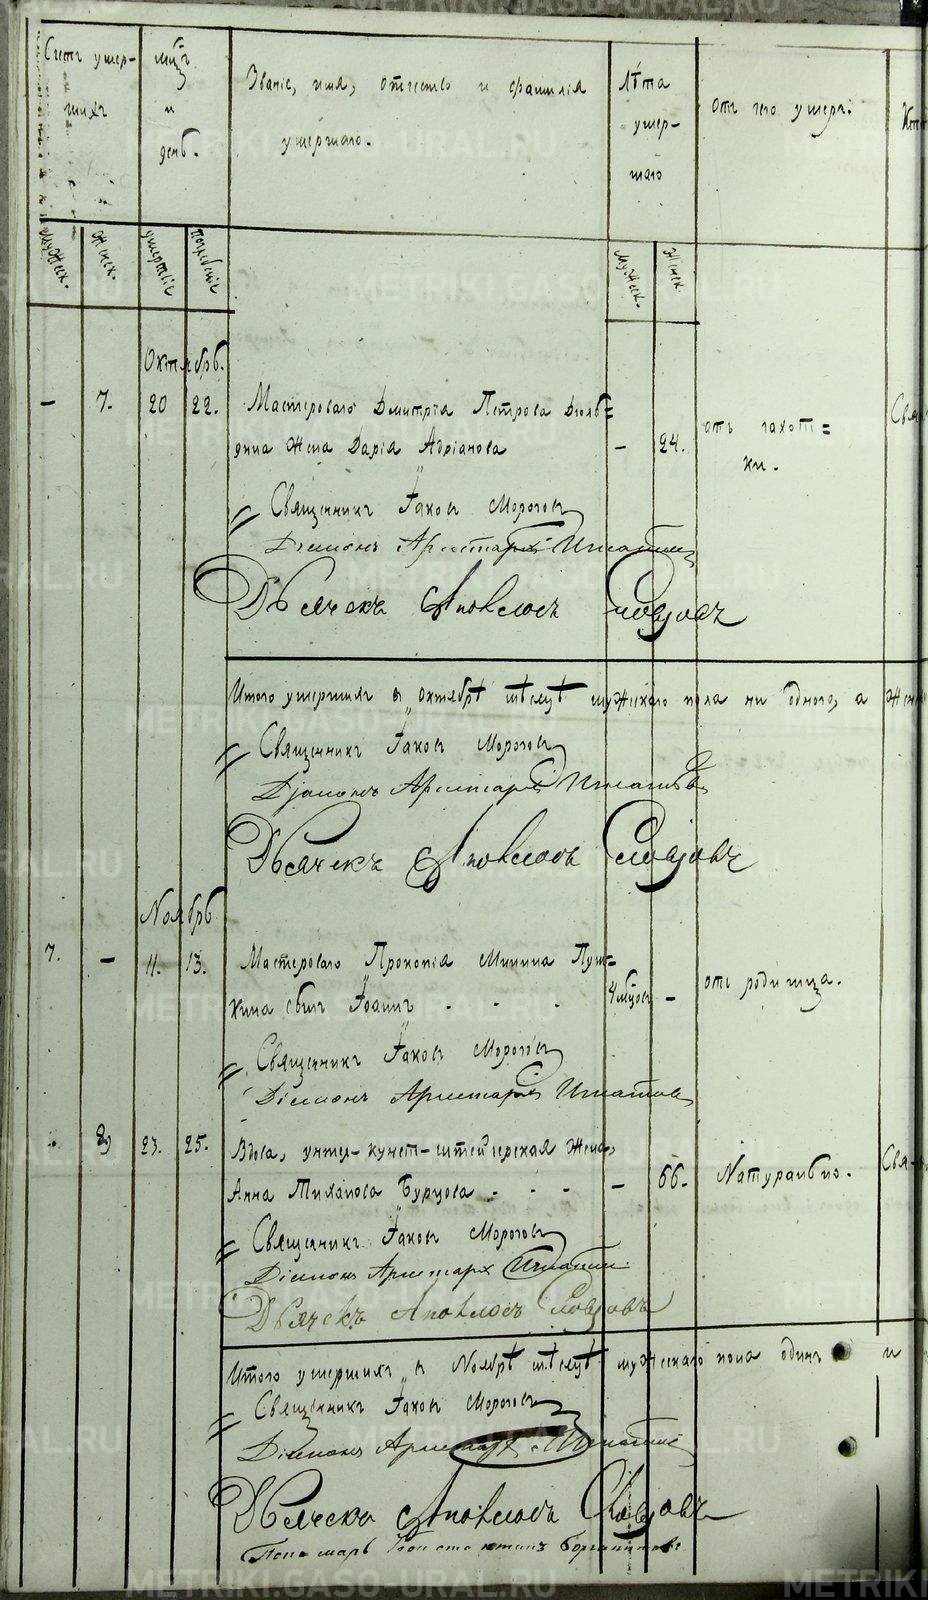 Счетъ умер-
шихъ
мѣсяцъ
и
день.
Званіе, имя, отчество и фамилія
умершаго.
Лѣта
умер-
шаго
отъ чего умеръ.
Мужеск.
Женск.
умертвіе
погребеніе
Мужеск.
Женск.
Октябрь.
– 7. 20 22. Мастероваго Дмитрія Петрова
жена Дарія Адріанова – 24. отъ чахот=
ки.
Священникъ Іаковъ Морозовъ
Діаконъ Аристархъ Игнатьевъ
Дьячекъ Аполлосъ Словцовъ
Итого умершихъ въ октябрѣ мѣсяцѣ мужескаго пола ни одного, а жен
Священникъ Іаковъ Морозовъ
Діаконъ Аристархъ Игнатьевъ
Дьячекъ Аполлосъ Словцовъ
Ноябрь
7. – 11. 13. Мастероваго Прокопія Минина Пуш=
кина сынъ Іоаннъ - - - 4 мѣсяц. – отъ родимца.
Священникъ Іаковъ Морозовъ
Діаконъ Аристархъ Игнатьевъ
8 23. 25. Вдова, унтеръ-кунст-штейгерская жена,
Анна Бурцова - - - – 66. Натурально.
Священникъ Іаковъ Морозовъ
Діаконъ Аристархъ Игнатьевъ
Дьячекъ Аполлосъ Словцовъ
Итого умершихъ въ Ноябрѣ мѣсяцѣ мужескаго пола одинъ и
Священникъ Іаковъ Морозовъ
Діаконъ Аристархъ Игнатьевъ
Дьячекъ Аполлосъ Словцовъ
Пономарь Константинъ
METRIKI.GASO-URAL.RU